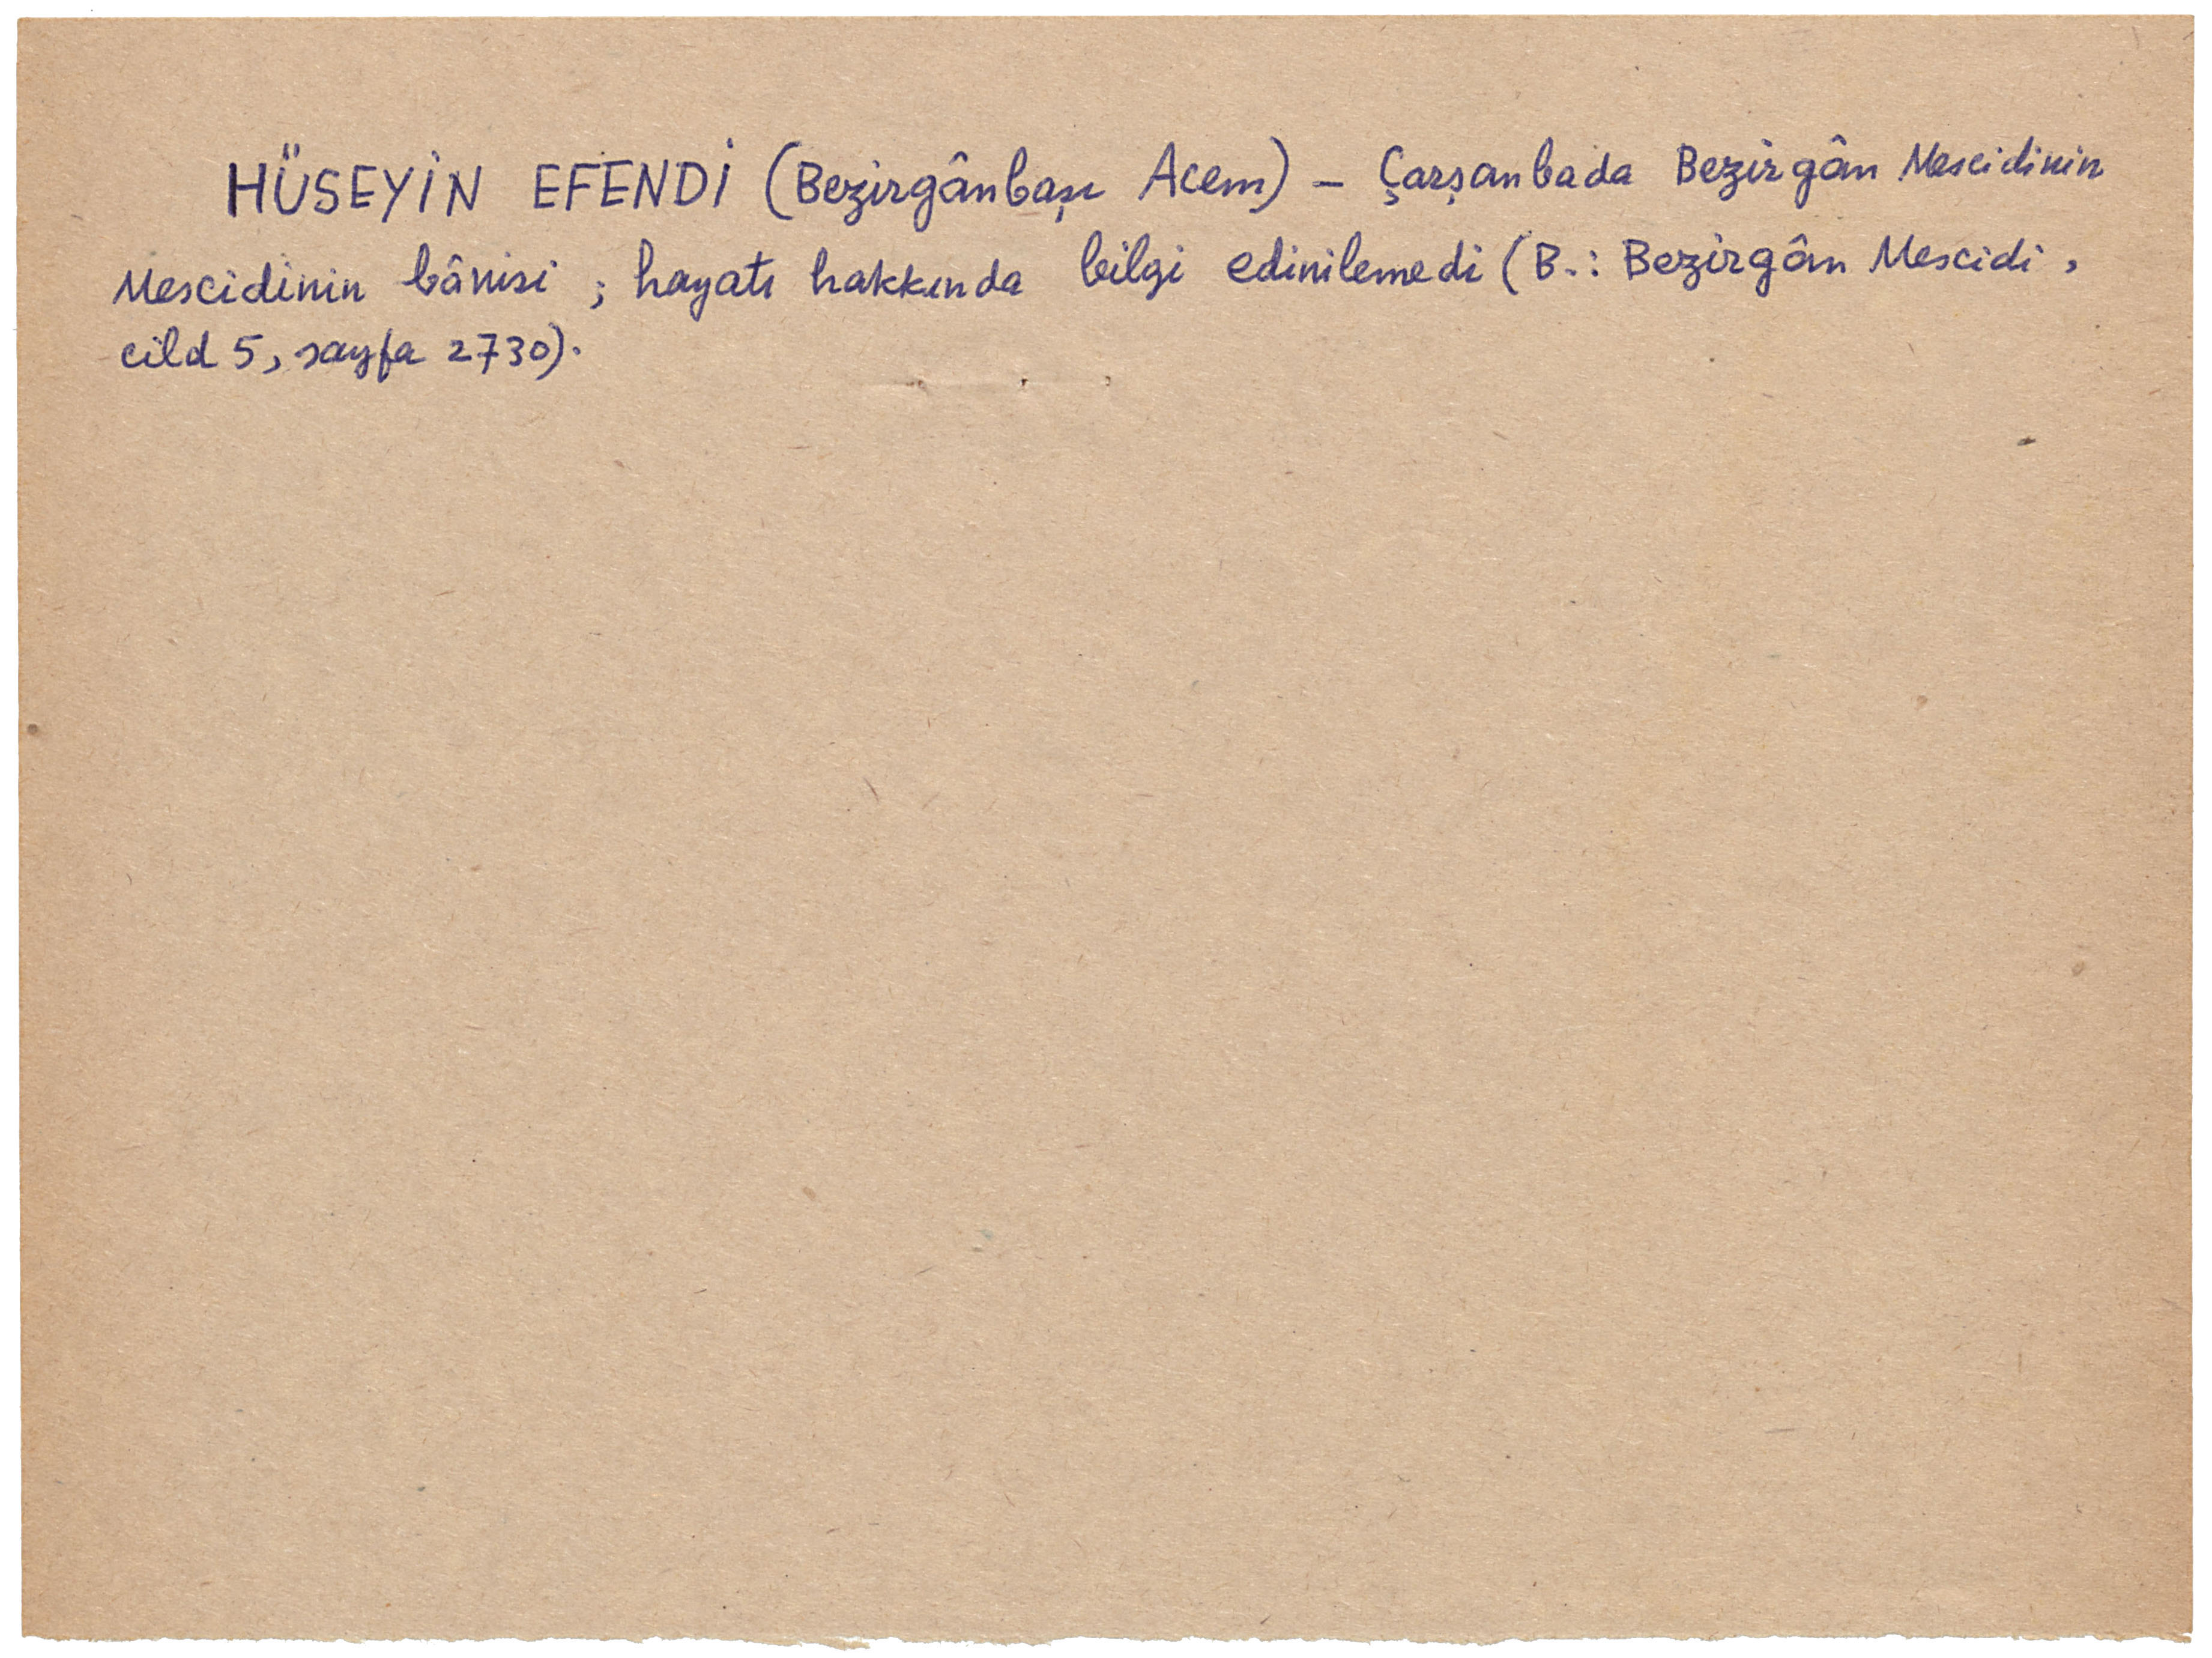 HÜSEYİN EFENDİ (Bezirgânbaşı Acem) — Çarşanbada Bezirgân Mescidinin
Mescidinin bânisi ; hayatı hakkında bilgi edinilemedi (B.: Bezirgân Mescidi,
cild 5, sayfa 2730).